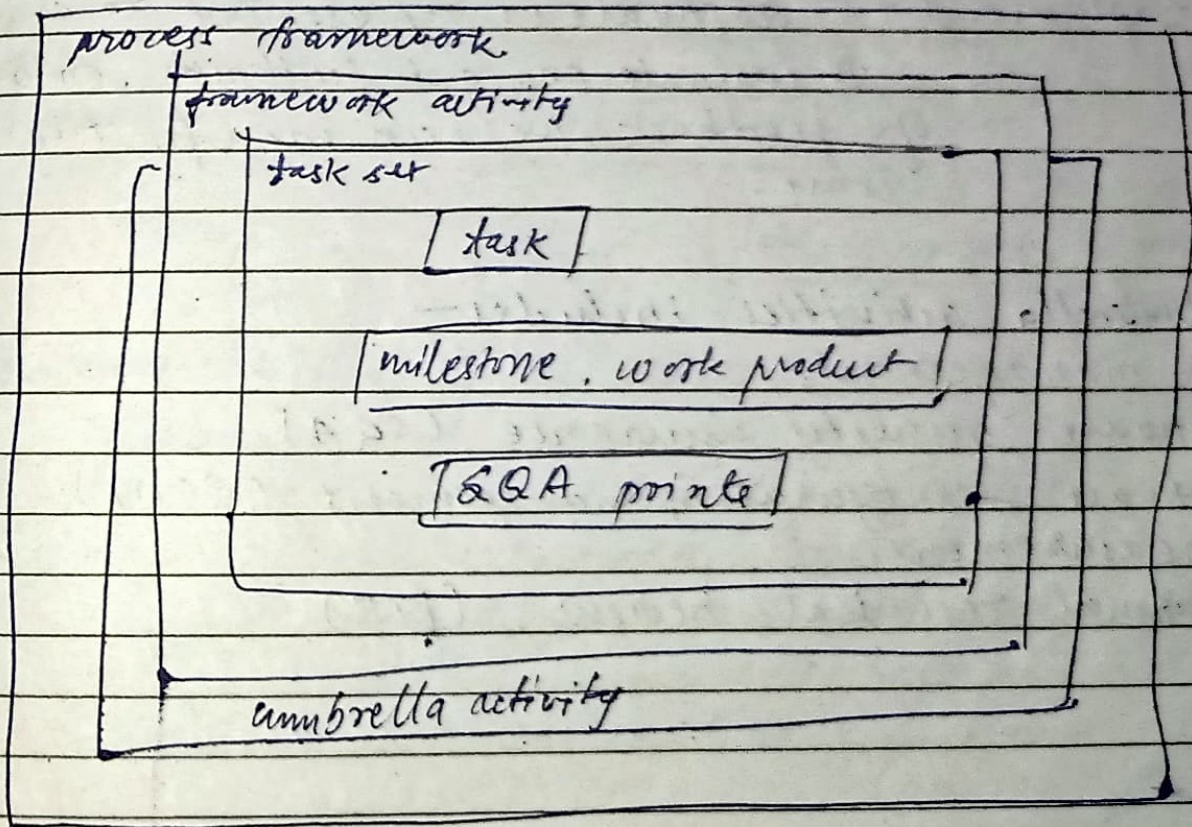 process framework
framework activity
task set
task
milestone. work product
SQA points
umbrella activity